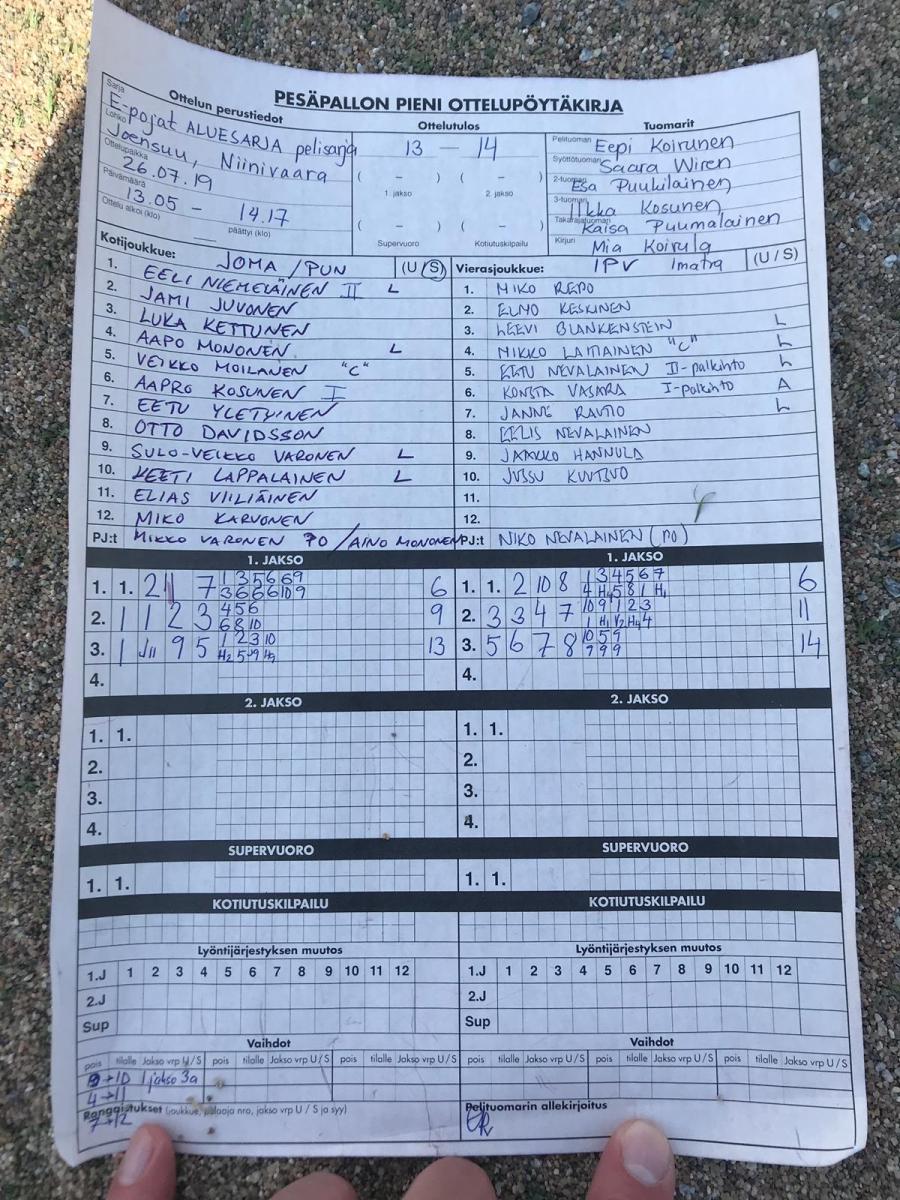 PESÄPALLON PIENI OTTELUPÖYTÄKIRJA
Sarja
Ottelun perustiedot
E-pojat ALUESARJA pelisarja
Lohko
Joensuu, Niinivaara
Ottelupaikka
26.07.19
Päivämäärä
13.05 - 14.17
Ottelu alkoi (klo) päättyi (klo)
Ottelutulos
13 - 14
( - ) ( - )
1. jakso 2. jakso
( - ) ( - )
Supervuoro Kotiutuskilpailu
Tuomarit
Pelituomari Eepi Koirunen
Syöttötuomari Saara Wiren
2-tuomari Esa Puukilainen
3-tuomari Ilkka Kosunen
Takarajatuomari Kaisa Puumalainen
Kirjuri Mia Koirula
Kotijoukkue: JOMA / PUN (U / S)
1. EELI NIEMELÄINEN II L
2. JAMI JUVONEN
3. LUKA KETTUNEN
4. AAPO MONONEN L
5. VEIKKO MOILANEN "C"
6. AAPRO KOSUNEN I
7. EETU YLETYINEN
8. OTTO DAVIDSSON
9. SULO-VEIKKO VARONEN L
10. LAPPALAINEN L
11. ELIAS VIILIÄINEN
12. MIKO KARVONEN
PJ:t MIKKO VARONEN PO / AINO MONONEN
Vierasjoukkue: IPV Imatra (U / S)
1. MIKO REPO
2. ELMO KESKINEN
3. LEEVI BLANKENSTEIN L
4. MIKKO LAITIAINEN "C" L
5. EETU NEVALAINEN II-palkinto L
6. KONSTA VASARA I-palkinto A
7. JANNE RAUTIO L
8. EELIS NEVALAINEN
9. JAAKKO HANNULA
10. JUSSU
11.
12.
PJ:t NIKO NEVALAINEN (PO)
1. JAKSO
1. 1. 2 7 1 3 5 6 6 9 6
3 6 6 6 10 9
2. 1 1 2 3 4 5 6 9
6 8 10
3. 1 9 5 1 2 3 10 13
4.
1. JAKSO
1. 1. 2 10 8 1 3 4 5 6 7 6
4 H4 5 8 1 H1
2. 3 3 4 7 10 9 1 2 3 11
3. 5 6 7 8 10 5 9 14
9 9 9
4.
2. JAKSO
1. 1.
2.
3.
4.
2. JAKSO
1. 1.
2.
3.
4.
SUPERVUORO
1. 1.
SUPERVUORO
1. 1.
KOTIUTUSKILPAILU
KOTIUTUSKILPAILU
Lyöntijärjestyksen muutos
1.J 1 2 3 4 5 6 7 8 9 10 11 12
2.J
Sup
Lyöntijärjestyksen muutos
1.J 1 2 3 4 5 6 7 8 9 10 11 12
2.J
Sup
Vaihdot
pois tilalle Jakso vrp U / S pois tilalle Jakso vrp U / S pois tilalle Jakso vrp U / S
9→10 1jakso 3a
4→11
7→12
Rangaistukset (joukkue, pelaaja nro, jakso vrp U / S ja syy)
Vaihdot
pois tilalle Jakso vrp U / S pois tilalle Jakso vrp U / S pois tilalle Jakso vrp U / S
Pelituomarin allekirjoitus